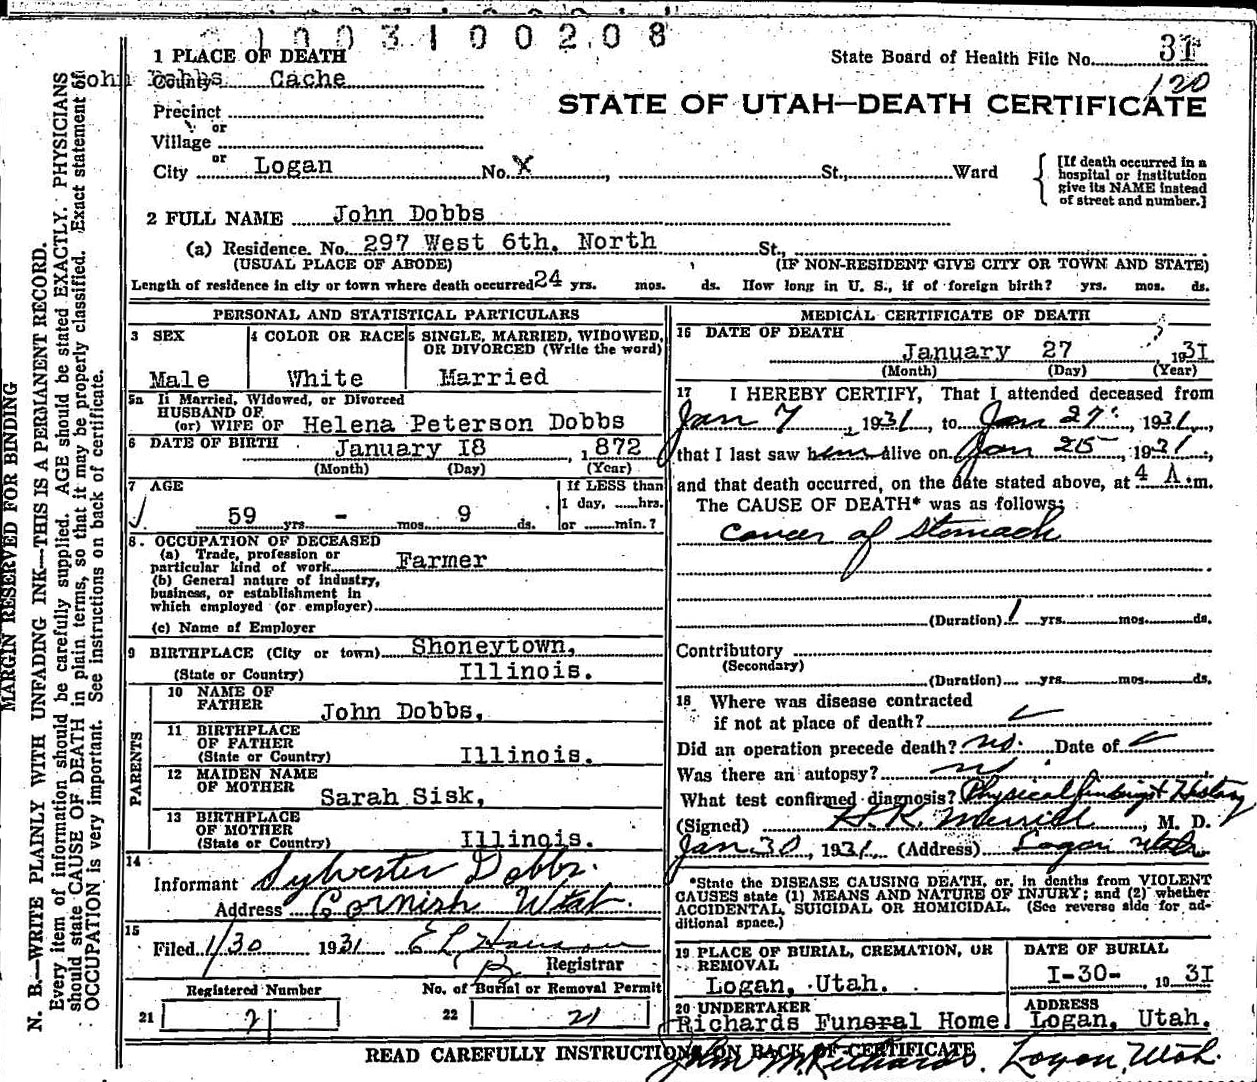 1003100208
1 PLACE OF DEATH
State Board of Health File No. 31
120
John Dobbs
County Cache
STATE OF UTAH—DEATH CERTIFICATE
Precinct
or
Village
or
City Logan No. X, St., Ward
[If death occurred in a hospital or institution give its NAME instead of street and number.]
2 FULL NAME John Dobbs
(a) Residence. No. 297 West 6th. North St.,
(USUAL PLACE OF ABODE) (IF NON-RESIDENT GIVE CITY OR TOWN AND STATE)
Length of residence in city or town where death occurred 24 yrs. mos. ds. How long in U. S., if of foreign birth? yrs. mos. ds.
PERSONAL AND STATISTICAL PARTICULARS
3 SEX
Male
4 COLOR OR RACE
White
5 SINGLE, MARRIED, WIDOWED,
OR DIVORCED (Write the word)
Married
5a If Married, Widowed, or Divorced
HUSBAND OF
(or) WIFE OF Helena Peterson Dobbs
6 DATE OF BIRTH January 18, 1872
(Month) (Day) (Year)
7 AGE
59 yrs. - mos. 9 ds.
If LESS than
1 day, hrs.
or min.?
8. OCCUPATION OF DECEASED
(a) Trade, profession or
particular kind of work Farmer
(b) General nature of industry,
business, or establishment in
which employed (or employer)
(c) Name of Employer
9 BIRTHPLACE (City or town) Shoneytown,
(State or Country) Illinois.
PARENTS
10 NAME OF
FATHER John Dobbs,
11 BIRTHPLACE
OF FATHER
(State or Country) Illinois.
12 MAIDEN NAME
OF MOTHER Sarah Sisk,
13 BIRTHPLACE
OF MOTHER
(State or Country) Illinois.
14
Informant Sylvester Dobbs.
Address Cornish Utah.
15
Filed 1/30 1931 E L Hanson
B Registrar
Registered Number
21 21
No. of Burial or Removal Permit
22 21
MEDICAL CERTIFICATE OF DEATH
16 DATE OF DEATH
January 27, 1931
(Month) (Day) (Year)
17 I HEREBY CERTIFY, That I attended deceased from
Jan 7, 1931, to Jan 27, 1931,
that I last saw him alive on Jan 25, 1931,
and that death occurred, on the date stated above, at 4 A.m.
The CAUSE OF DEATH* was as follows:
Cancer of Stomach
(Duration) 1 yrs. mos. ds.
Contributory
(Secondary)
(Duration) yrs. mos. ds.
18 Where was disease contracted
if not at place of death?
Did an operation precede death? no. Date of
Was there an autopsy? no
What test confirmed diagnosis? Physical findings & History
(Signed) H. K. Merrill, M. D.
Jan 30, 1931, (Address) Logan Utah
*State the DISEASE CAUSING DEATH, or, in deaths from VIOLENT
CAUSES state (1) MEANS AND NATURE OF INJURY; and (2) whether
ACCIDENTAL, SUICIDAL OR HOMICIDAL. (See reverse side for ad-
ditional space.)
19 PLACE OF BURIAL, CREMATION, OR
REMOVAL
Logan, Utah.
DATE OF BURIAL
1-30- 1931
20 UNDERTAKER
Richards Funeral Home
ADDRESS
Logan, Utah.
READ CAREFULLY INSTRUCTIONS ON BACK OF CERTIFICATE
John M. Richards. Logan, Utah.
MARGIN RESERVED FOR BINDING
N. B.—WRITE PLAINLY WITH UNFADING INK—THIS IS A PERMANENT RECORD.
Every item of information should be carefully supplied. AGE should be stated EXACTLY. PHYSICIANS
should state CAUSE OF DEATH in plain terms, so that it may be properly classified. Exact statement of
OCCUPATION is very important. See instructions on back of certificate.